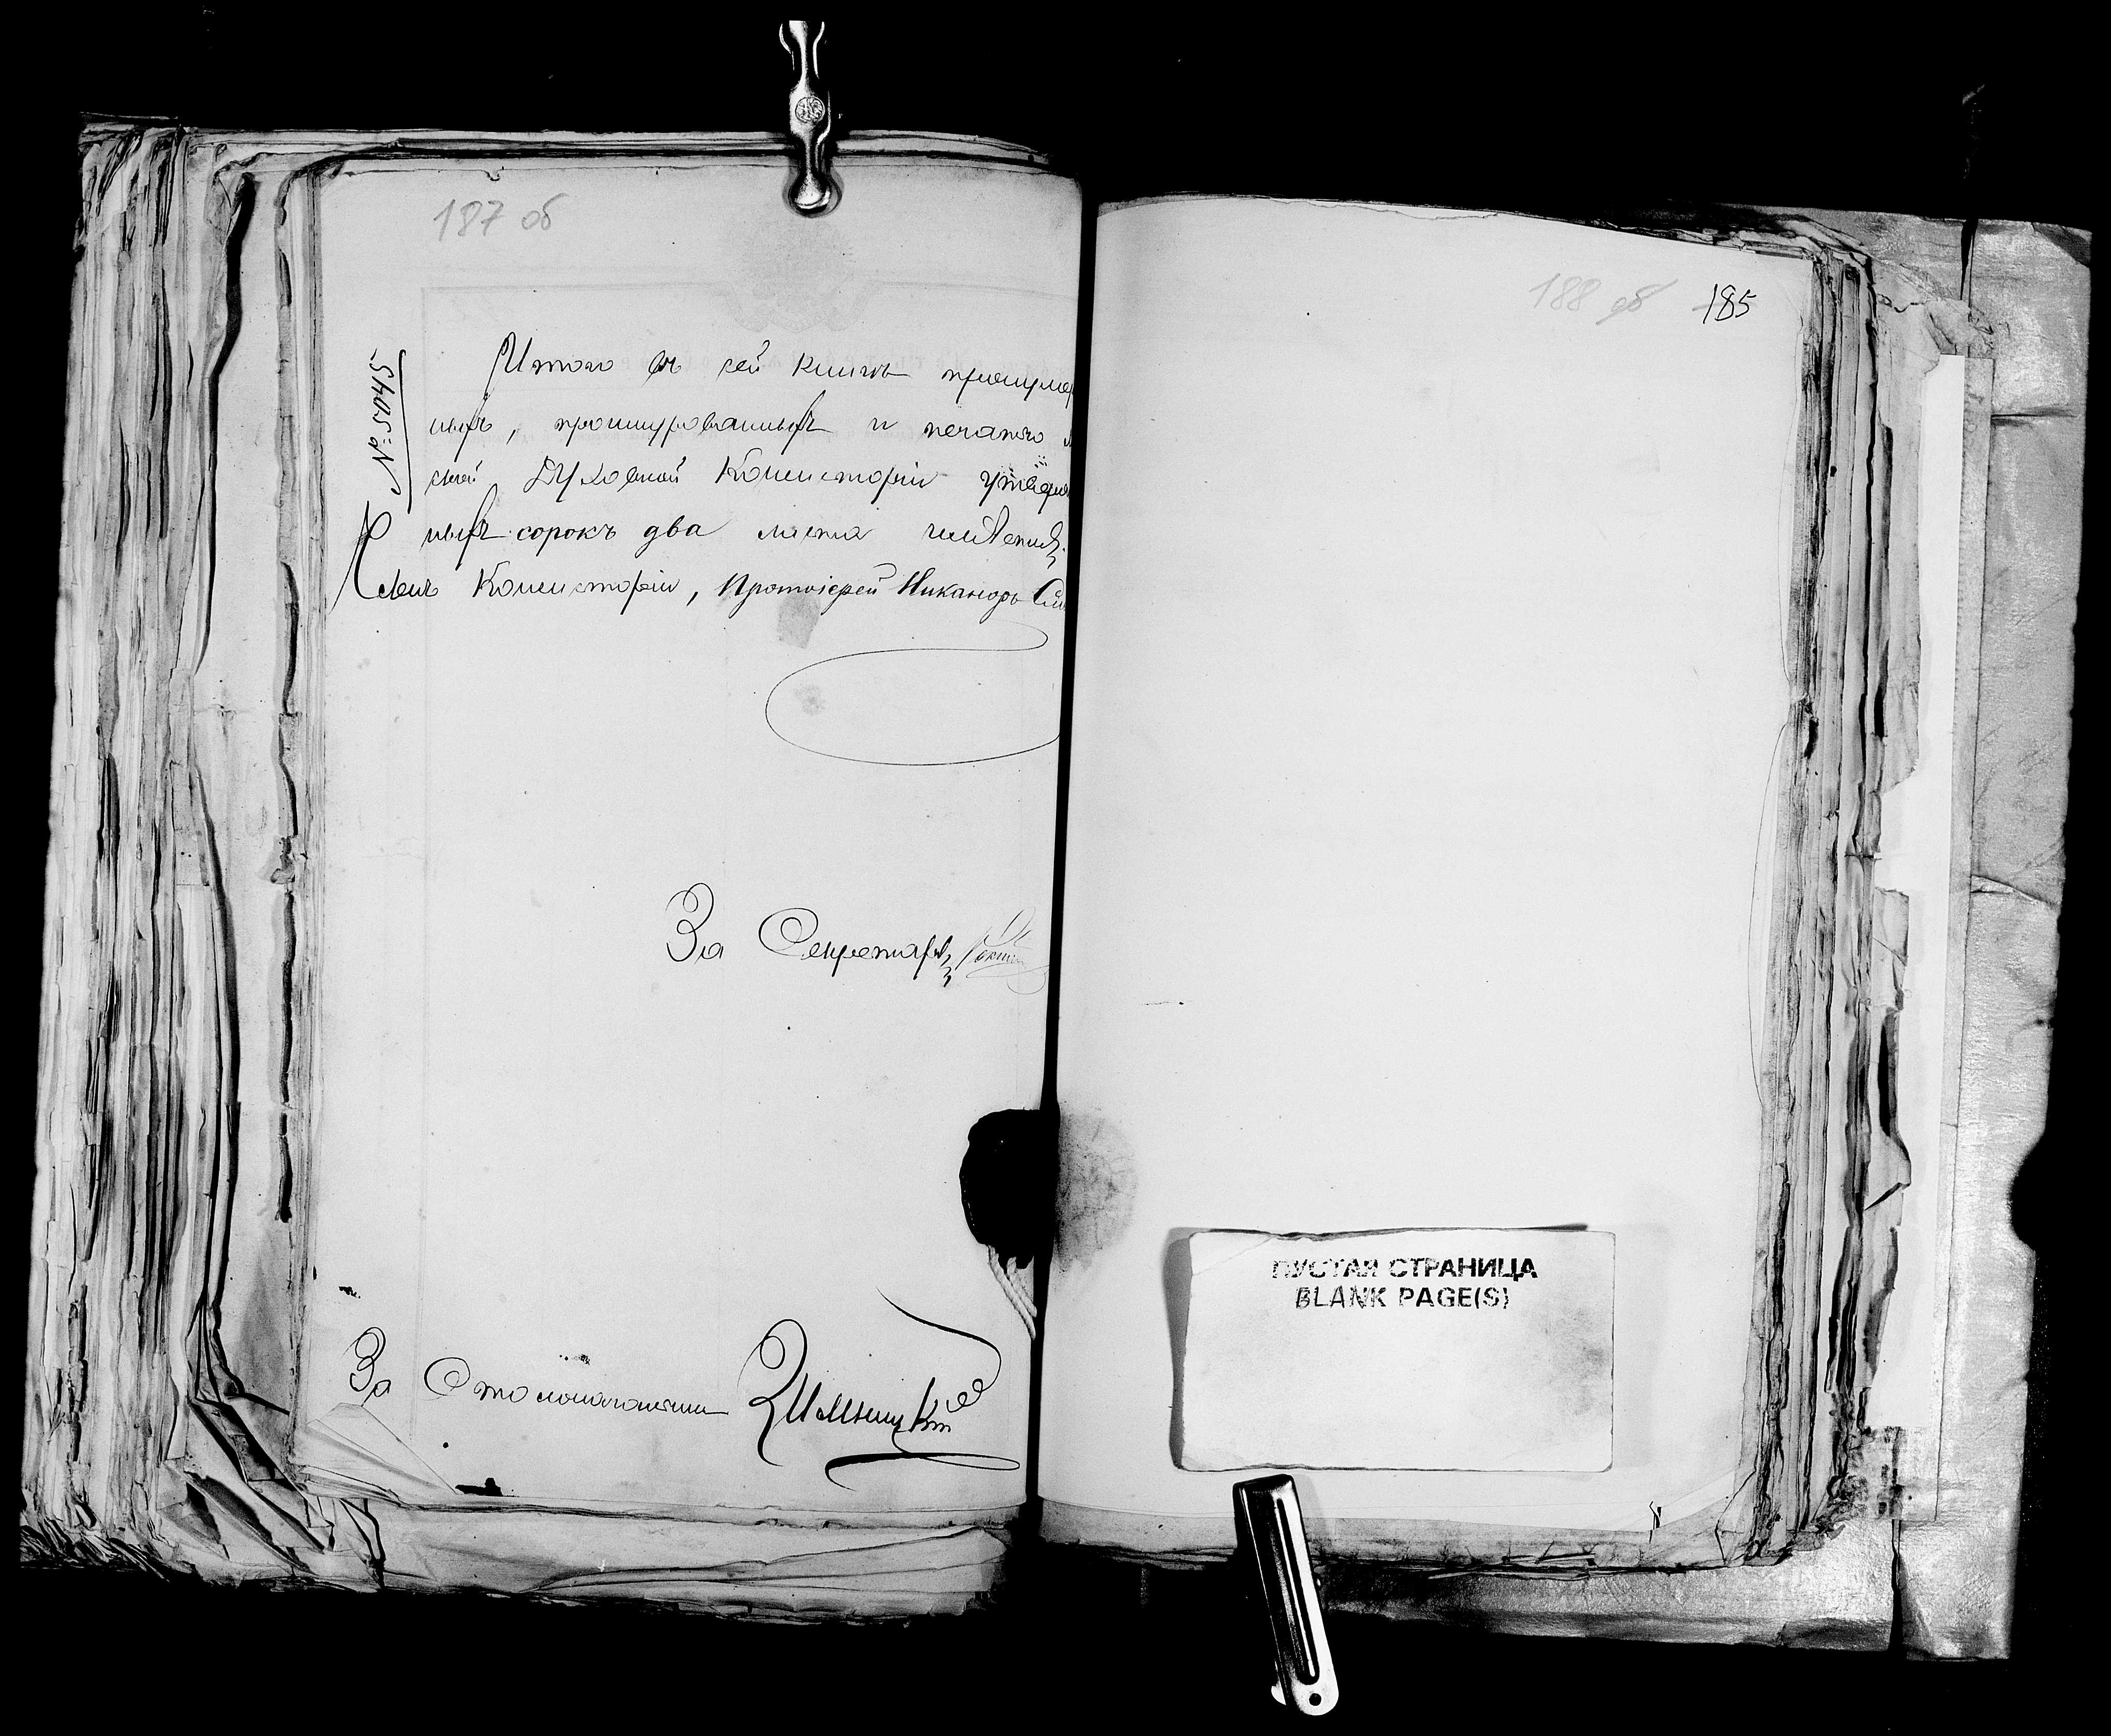 187 об
№ 5045
Итого въ сей книгѣ пронумеро
ныхъ, прошнурованныхъ и печатью
ской Духовной Консисторіи
ныхъ сорокъ два листа
Членъ Консисторіи, Протоіерей Никаноръ
За Секретаря
За Столоначальника
188 об 185
ПУСТАЯ СТРАНИЦА
BLANK PAGE(S)